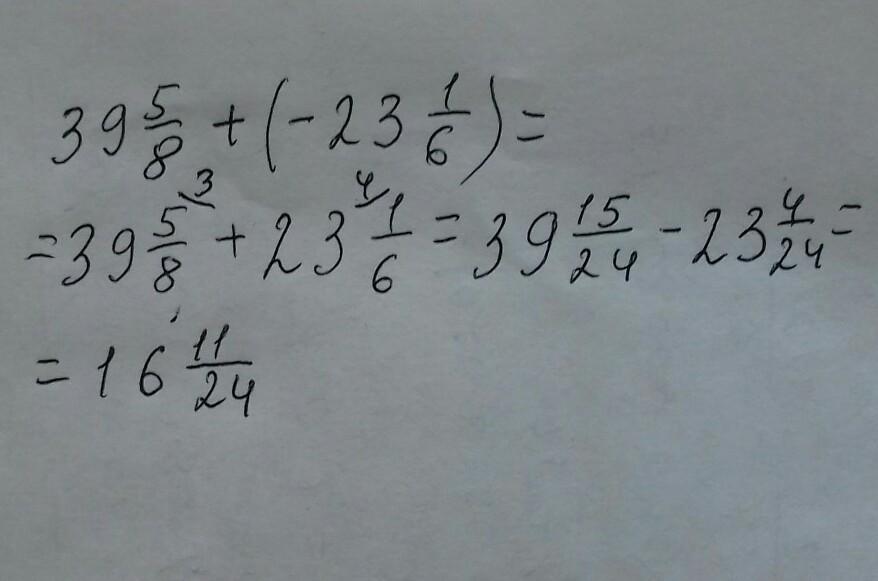 39 5/8 + (-23 1/6) =
= 39 5/8 ³ + 23 ⁴ 1/6 = 39 15/24 - 23 4/24 =
= 16 11/24